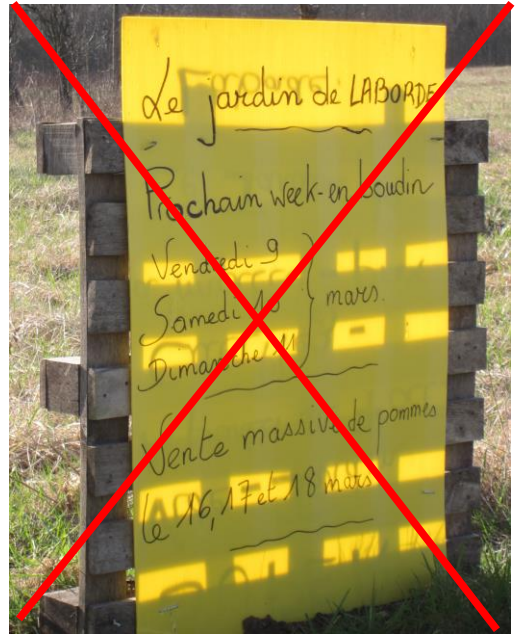 Le jardin de LABORDE
Prochain week-en boudin
Vendredi 9
Samedi 10
Dimanche 11
mars.
Vente massive de pommes
le 16, 17 et 18 mars